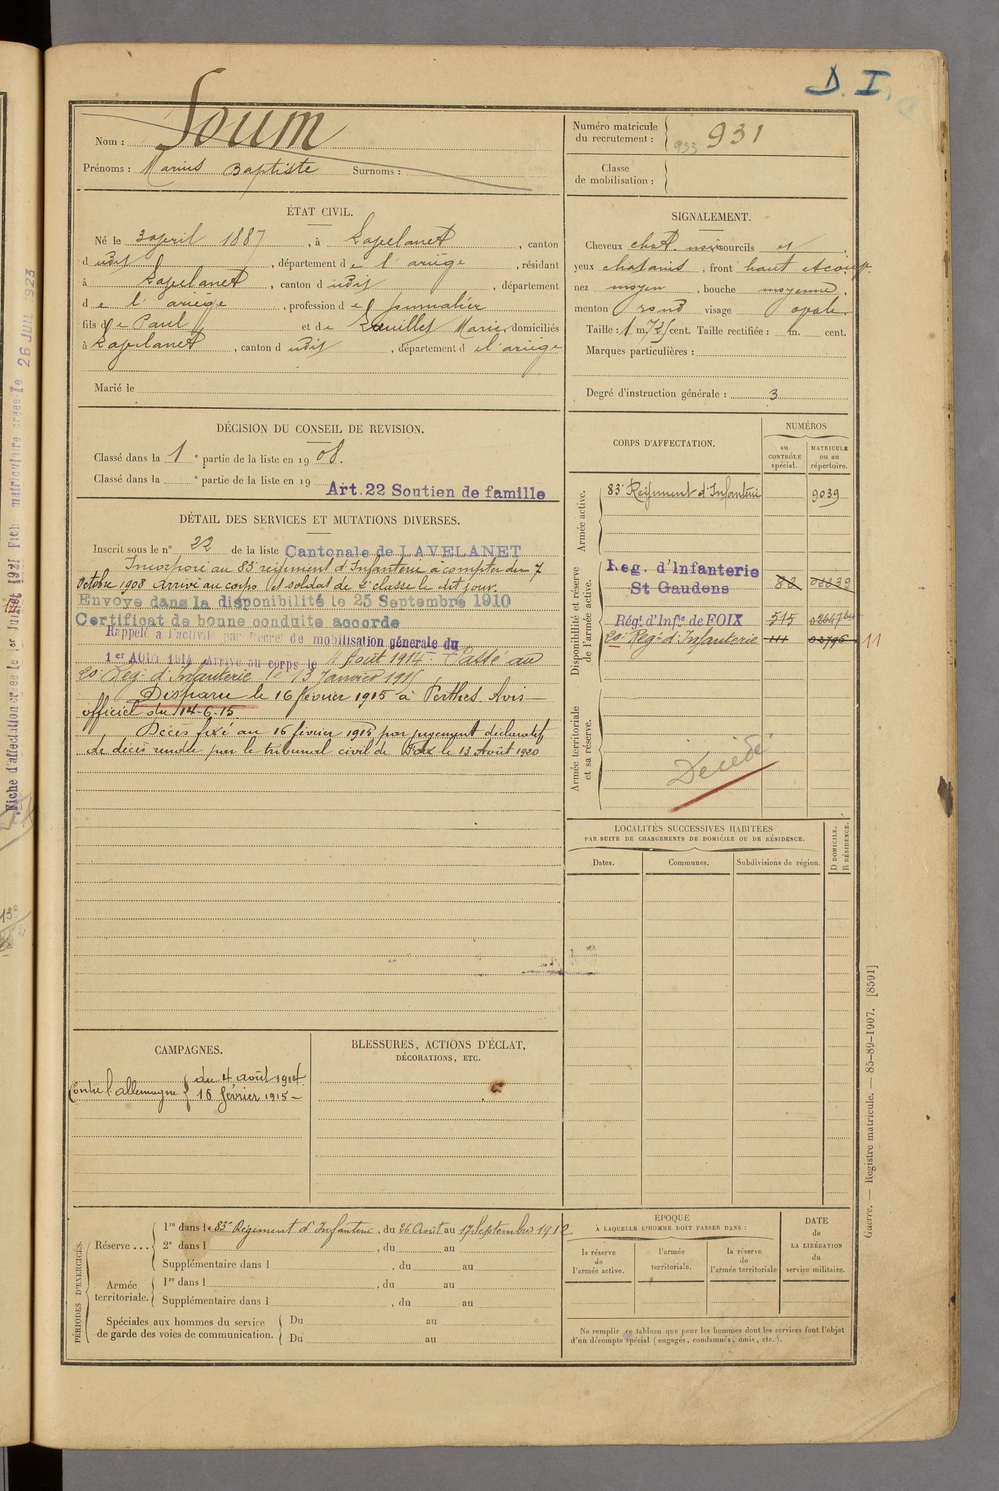 D. I.
Nom : Soum
Prénoms : Marius Baptiste Surnoms :
Numéro matricule
du recrutement : 931
933
Classe
de mobilisation :
ÉTAT CIVIL.
Né le 3 april 1887, à Lavelanet, canton
dudit, département de l'ariége, résidant
à Lavelanet, canton dudit, département
de l'ariége, profession de journalier
fils de Paul et de Marie, domiciliés
à Lavelanet, canton dudit, département de l'ariége
Marié le
SIGNALEMENT.
Cheveux chat. sourcils et
yeux chatains, front haut
nez moyen, bouche moyenne,
menton rond visage ovale.
Taille : 1 m. 75 cent. Taille rectifiée : m. cent.
Marques particulières :
Degré d'instruction générale : 3
DÉCISION DU CONSEIL DE REVISION.
Classé dans la 1e partie de la liste en 1908.
Classé dans la e partie de la liste en 19
Art. 22 Soutien de famille
DÉTAIL DES SERVICES ET MUTATIONS DIVERSES.
Inscrit sous le n° 22 de la liste Cantonale de LAVELANET
Incorporé au 83e régiment d'Infanterie à compter du 7
Octobre 1908 arrivé au corps et soldat de 2e classe le dit jour.
Envoyé dans la disponibilité le 25 Septembre 1910
Certificat de bonne conduite accordé
Rappelé à l'activité par Décret de mobilisation générale du
1er AOUT 1914 Arrivé au corps le 4 Août 1914. Passé au
20e Rég. d'Infanterie le 13 Janvier 1915
Disparu le 16 février 1915 à Perthes. Avis
officiel du 14-6-15.
Décès fixé au 16 février 1915 par jugement déclaratif
de décès rendu par le tribunal civil de Foix le 13 Août 1920
CORPS D'AFFECTATION.
NUMÉROS
au
CONTRÔLE
spécial.
MATRICULE
ou au
répertoire.
Armée active.
83e Régiment d'Infanterie 9039
Disponibilité et réserve
de l'armée active.
Reg. d'Infanterie
St Gaudens 83
Régt d'Infie de FOIX
20e Régt d'Infanterie
11
Armée territoriale
et sa réserve.
Décédé
LOCALITÉS SUCCESSIVES HABITÉES
PAR SUITE DE CHANGEMENTS DE DOMICILE OU DE RÉSIDENCE.
Dates.
Communes.
Subdivisions de région.
D DOMICILE.
R RÉSIDENCE.
CAMPAGNES.
Contre l'allemagne du 4 août 1914
16 février 1915
BLESSURES, ACTIONS D'ÉCLAT,
DÉCORATIONS, ETC.
PÉRIODES D'EXERCICES.
Réserve ...
1re dans le 83e Régiment d'Infanterie, du 26 Août au 17 Septembre 1912
2e dans l , du au
Supplémentaire dans l , du au
Armée
territoriale.
1re dans l , du au
Supplémentaire dans l , du au
Spéciales aux hommes du service
de garde des voies de communication.
Du au
Du au
ÉPOQUE
À LAQUELLE L'HOMME DOIT PASSER DANS :
la réserve
de
l'armée active.
l'armée
territoriale.
la réserve
de
l'armée territoriale
DATE
de
LA LIBÉRATION
du
service militaire.
Ne remplir ce tableau que pour les hommes dont les services font l'objet
d'un décompte spécial (engagés, condamnés, omis, etc.).
Guerre. — Registre matricule. — 85-89-1907. [8591]
Fiche d'affectation créée le 1er Juillet 1921 Fiche matriculaire créée le 26 JUIL 1923